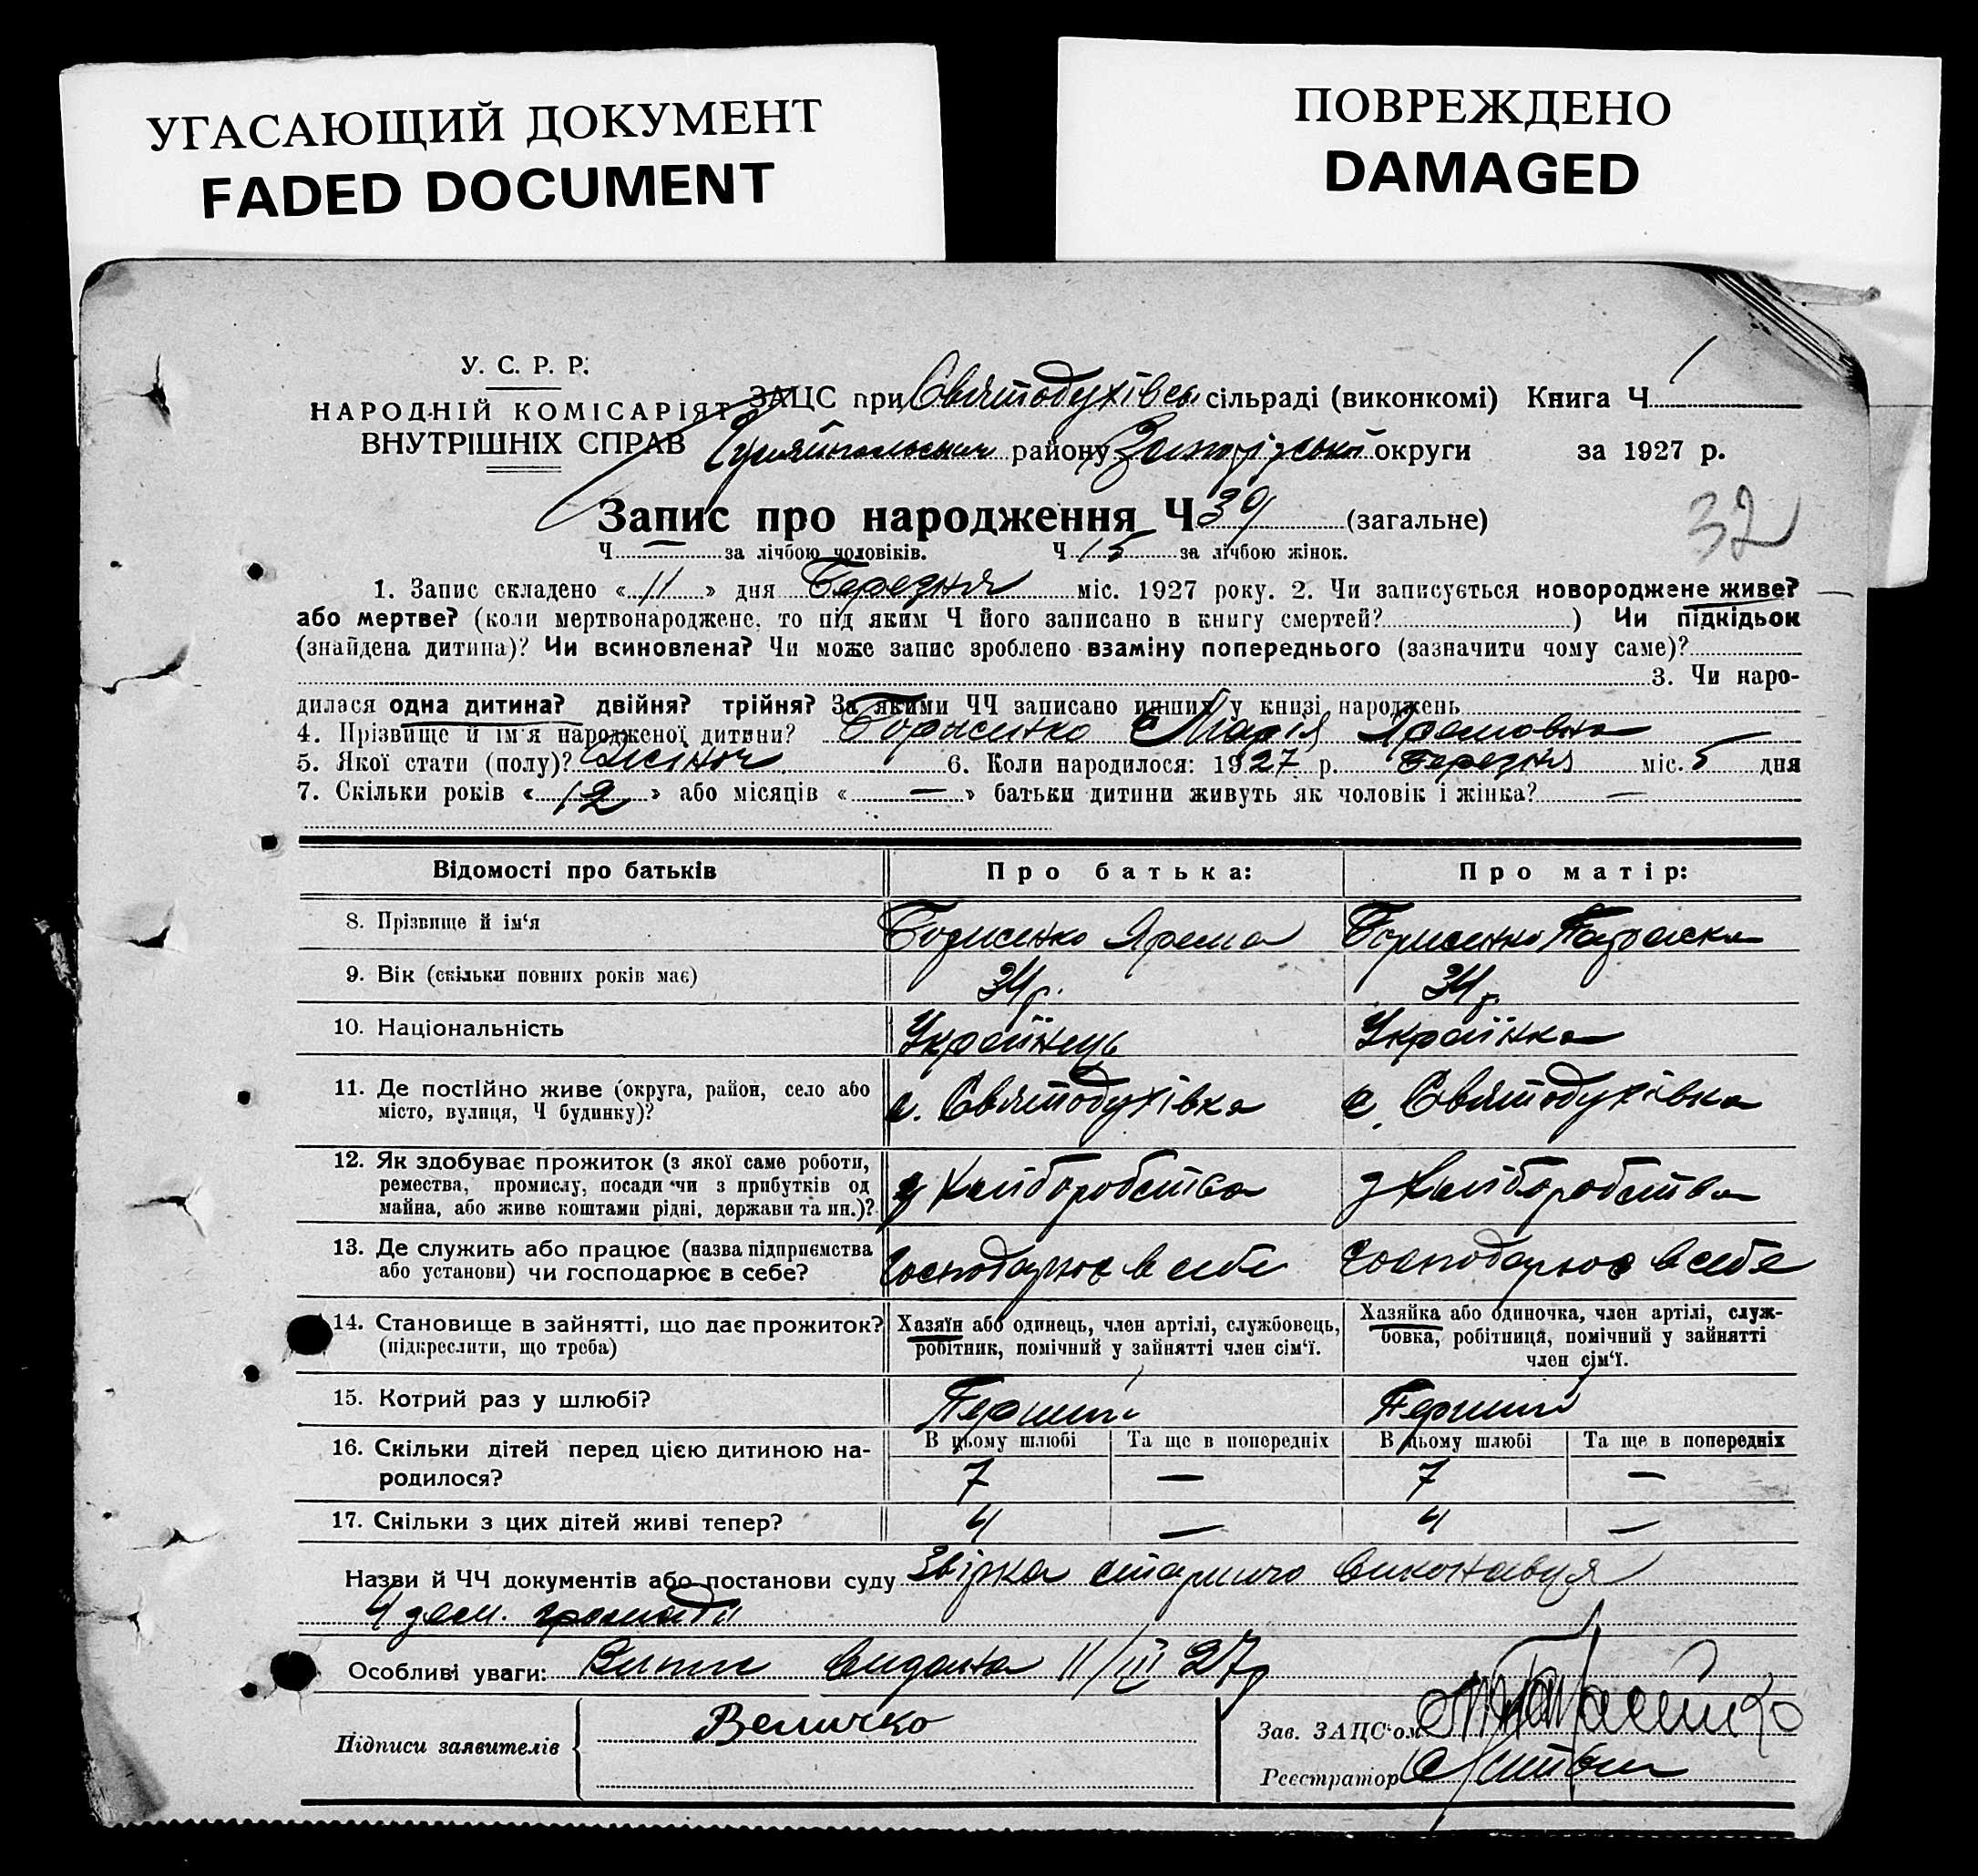 УГАСАЮЩИЙ ДОКУМЕНТ
FADED DOCUMENT
ПОВРЕЖДЕНО
DAMAGED
У. С. Р. Р.
НАРОДНІЙ КОМІСАРІЯТ
ВНУТРІШНІХ СПРАВ
ЗАЦС при Святодухівськ сільраді (виконкомі) Книга Ч 1
району Запорізької округи за 1927 р.
Запис про народження Ч 39 (загальне)
32
Ч — за лічбою чоловіків. Ч 15 за лічбою жінок.
1. Запис складено « 11 » дня Березня міс. 1927 року. 2. Чи записується новороджене живе?
або мертве? (коли мертвонароджене, то під яким Ч його записано в книгу смертей? ) Чи підкідьок
(знайдена дитина)? Чи всиновлена? Чи може запис зроблено взаміну попереднього (зазначити чому саме)?
3. Чи наро-
дилася одна дитина? двійня? трійня? За якими ЧЧ записано инших у книзі народжень
4. Прізвище й ім'я народженої дитини? Борисенко Марія Яремовна
5. Якої стати (полу)? Жіноч 6. Коли народилося: 1927 р. Березня міс. 5 дня
7. Скільки років « 12 » або місяців « — » батьки дитини живуть як чоловік і жінка? —
Відомості про батьків Про батька: Про матір:
8. Прізвище й ім'я Борисенко Ярема Борисенко Параска
9. Вік (скільки повних років має) 34 р. 34 р.
10. Національність Українець Українка
11. Де постійно живе (округа, район, село або
місто, вулиця, Ч будинку)? с. Святодухівка с. Святодухівка
12. Як здобуває прожиток (з якої саме роботи,
ремества, промислу, посади чи з прибутків од
майна, або живе коштами рідні, держави та ин.)? з хліборобства з хліборобства
13. Де служить або працює (назва підприємства
або установи) чи господарює в себе? Господарює в себе Господарює в себе
14. Становище в зайнятті, що дає прожиток?
(підкреслити, що треба)
Хазяїн або одинець, член артілі, службовець,
робітник, помічний у зайнятті член сім'ї.
Хазяйка або одиночка, член артілі, служ-
бовка, робітниця, помічний у зайнятті
член сім'ї.
15. Котрий раз у шлюбі? Перший Перший
16. Скільки дітей перед цією дитиною на-
родилося?
В цьому шлюбі Та ще в попередніх В цьому шлюбі Та ще в попередніх
7 — 7 —
17. Скільки з цих дітей живі тепер? 4 — 4 —
Назви й ЧЧ документів або постанови суду Звірка старшого виконавця
4 десят. громади
Особливі уваги: Випис видана 11/III 27 р
Підписи заявителів Величко
Зав. ЗАЦС'ом
Реєстратор